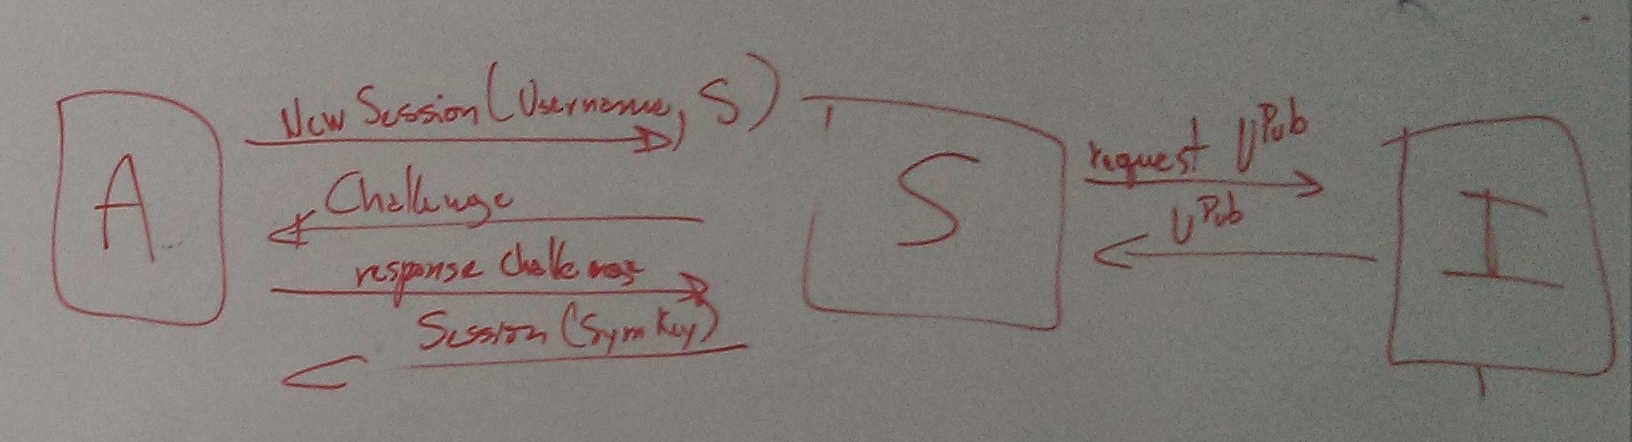 A
New Session (Username, S)
Challenge
response Challenge
Session (Sym Key)
S
request U^Pub
U^Pub
I